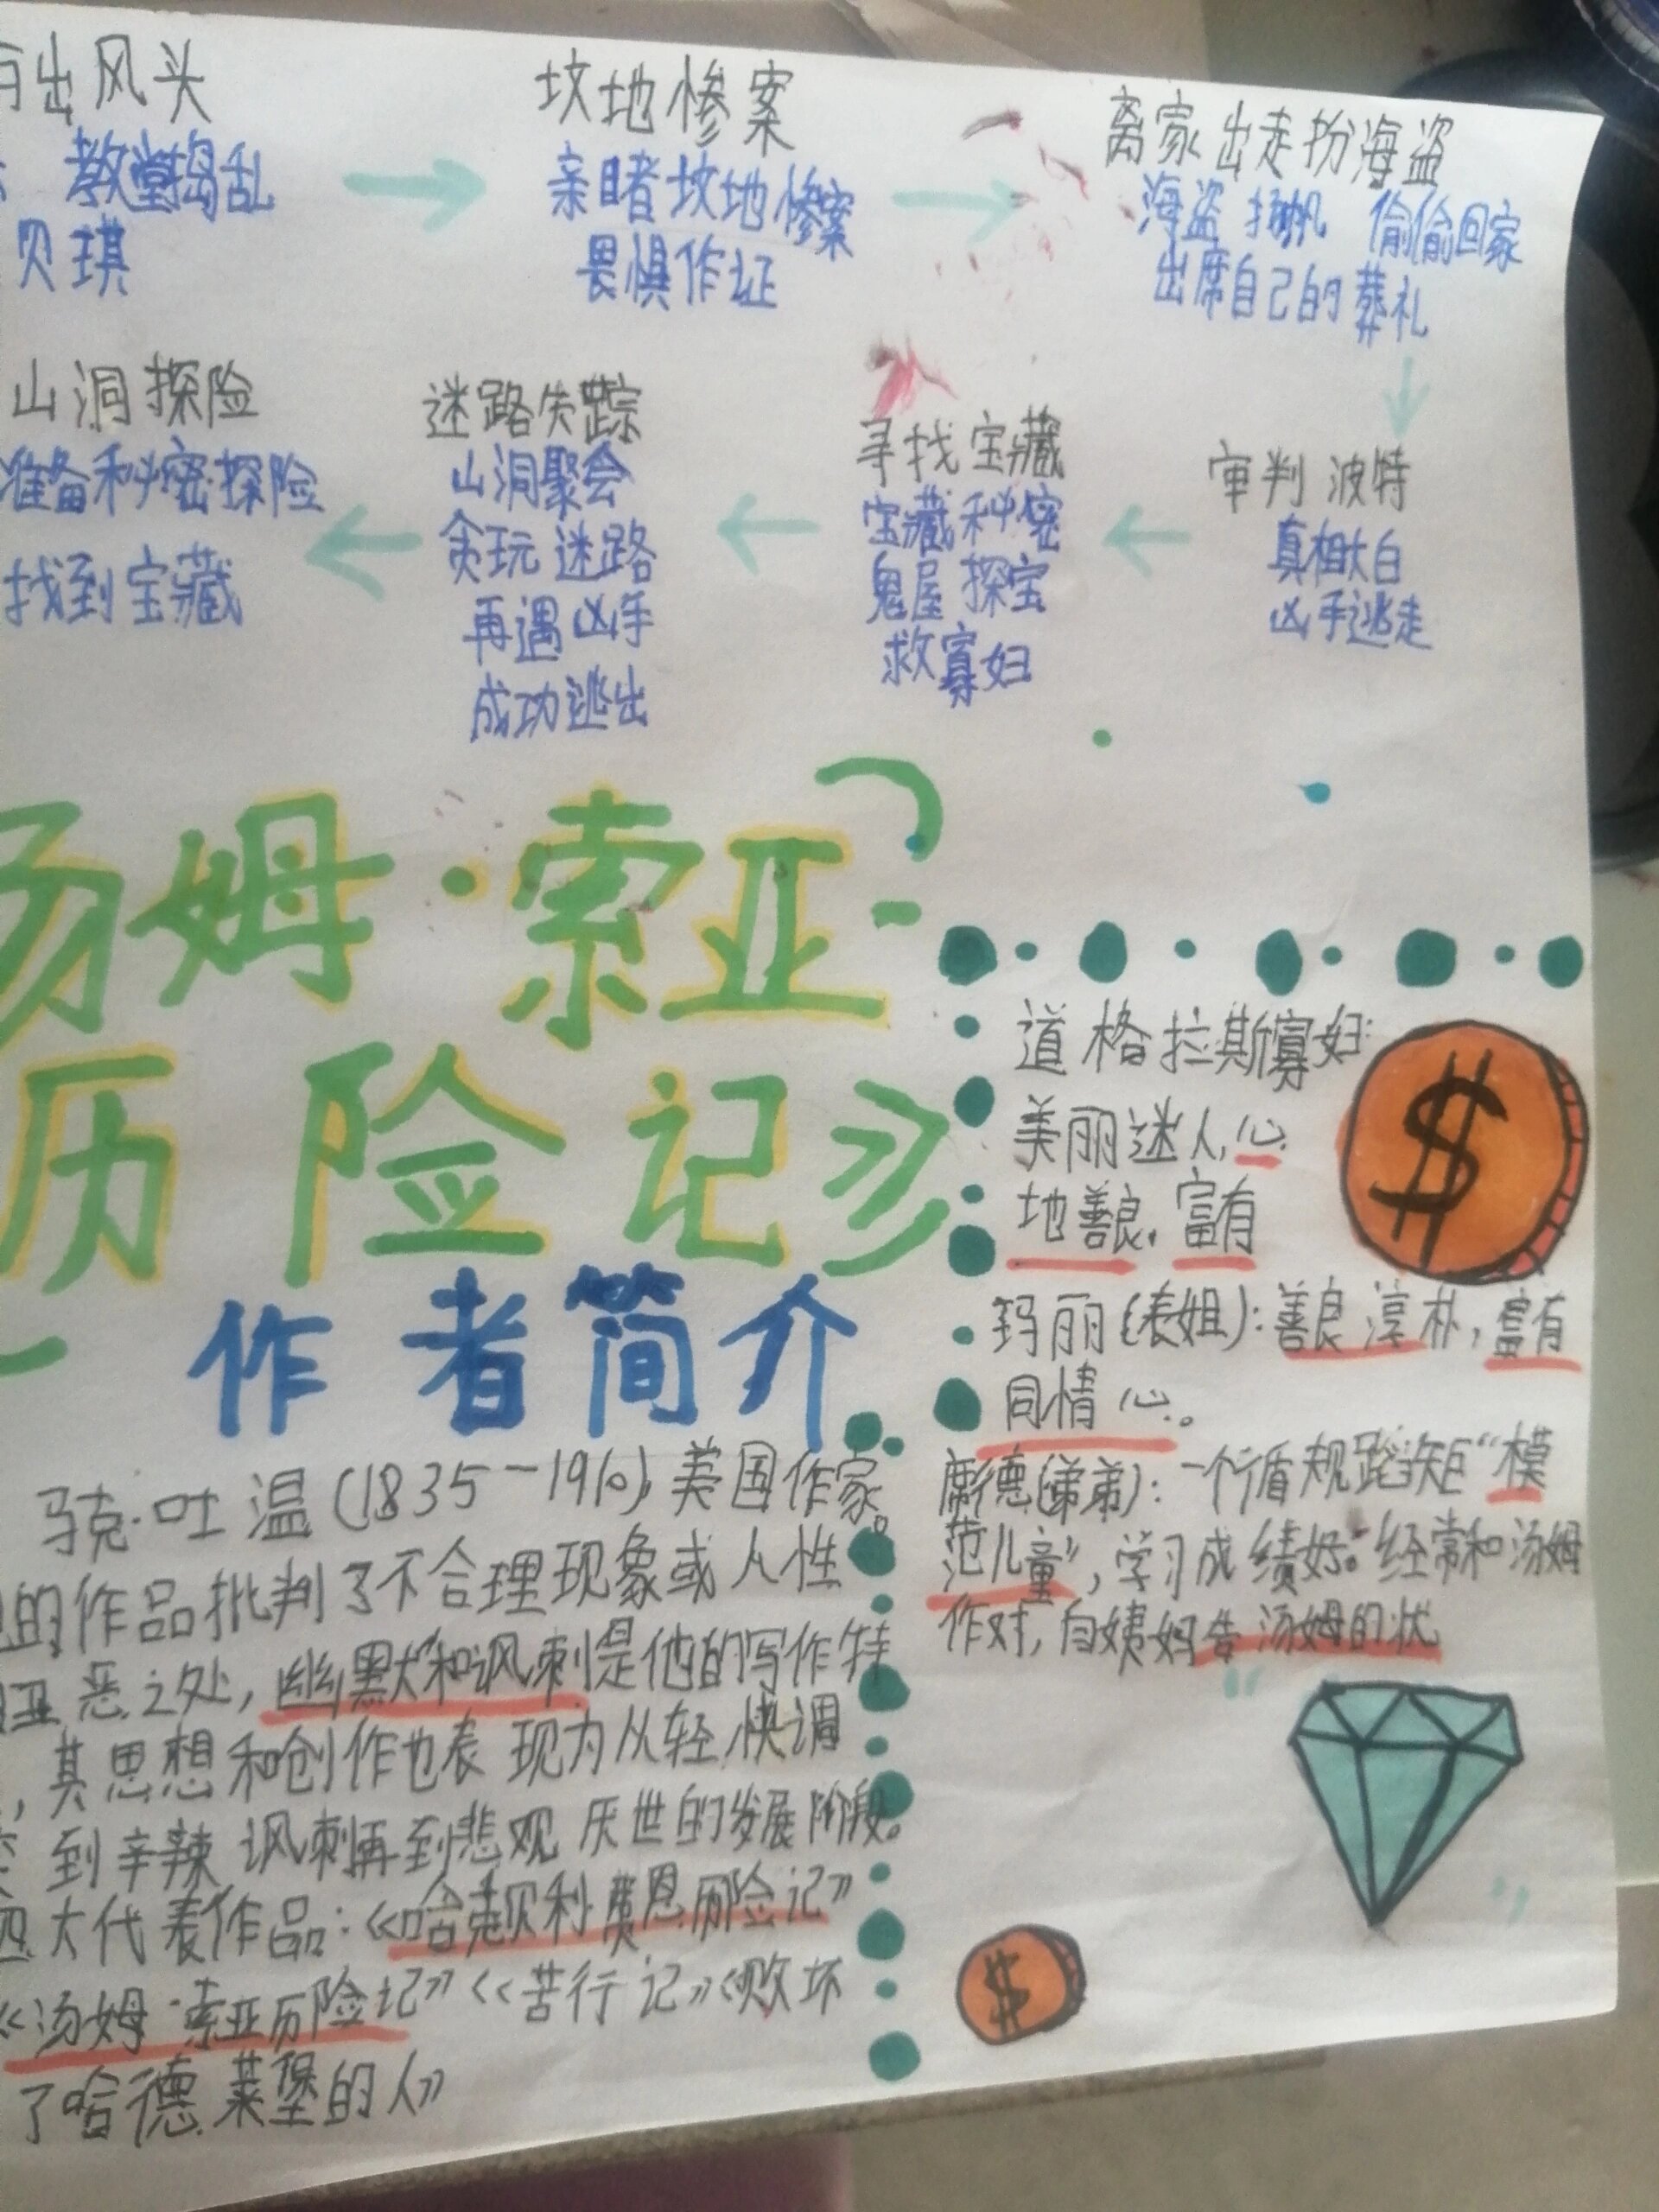 出风头
教堂捣乱
贝琪
坟地惨案
亲睹坟地惨案
畏惧作证
离家出走扮海盗
海盗扬帆 偷偷回家
出席自己的葬礼
审判波特
真相大白
凶手逃走
寻找宝藏
宝藏秘密
鬼屋探宝
救寡妇
迷路失踪
山洞聚会
贪玩迷路
再遇凶手
成功逃出
山洞探险
准备秘密探险
找到宝藏
汤姆·索亚
历险记》
作者简介
马克·吐温(1835-1910),美国作家。
的作品批判了不合理现象或人性
丑恶之处,幽默和讽刺是他的写作特
,其思想和创作也表现为从轻快调
到辛辣讽刺再到悲观厌世的发展阶段。
四大代表作品:《哈克贝利·费恩历险记》
《汤姆·索亚历险记》《苦行记》《败坏
了哈德莱堡的人》
道格拉斯寡妇:
美丽迷人,心
地善良,富有
玛丽(表姐):善良淳朴,富有
同情心。
席德(弟弟):一个循规蹈矩“模
范儿童”,学习成绩好。经常和汤姆
作对,向姨妈告汤姆的状
$
$